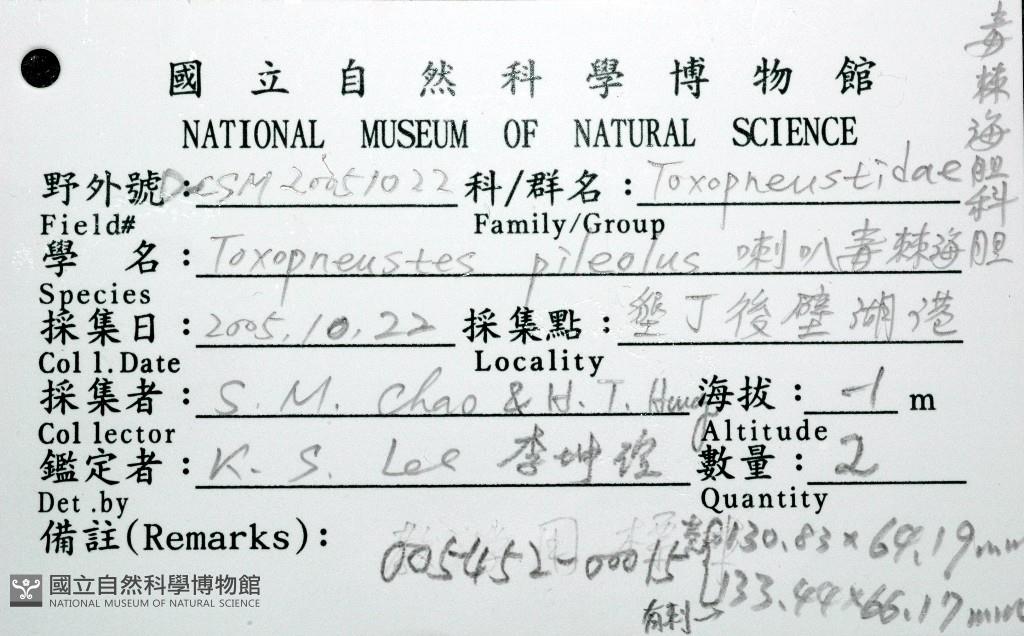 國立自然科學博物館
NATIONAL MUSEUM OF NATURAL SCIENCE
野外號: 20051022 科/群名: Toxopneustidae 毒棘海胆科
Field# Family/Group
學 名: Toxopneustes pileolus 喇叭毒棘海胆
Species
採集日: 2005.10.22 採集點: 墾丁後壁湖港
Coll.Date Locality
採集者: S. M. Chao & H. T. 海拔: -1 m
Collector Altitude
鑑定者: K. S. Lee 李坤瑄 數量: 2
Det.by Quantity
備註(Remarks):
005452-00015 { 130.83×64.19mm
有刺→ 133.44×66.17mm
國立自然科學博物館
NATIONAL MUSEUM OF NATURAL SCIENCE